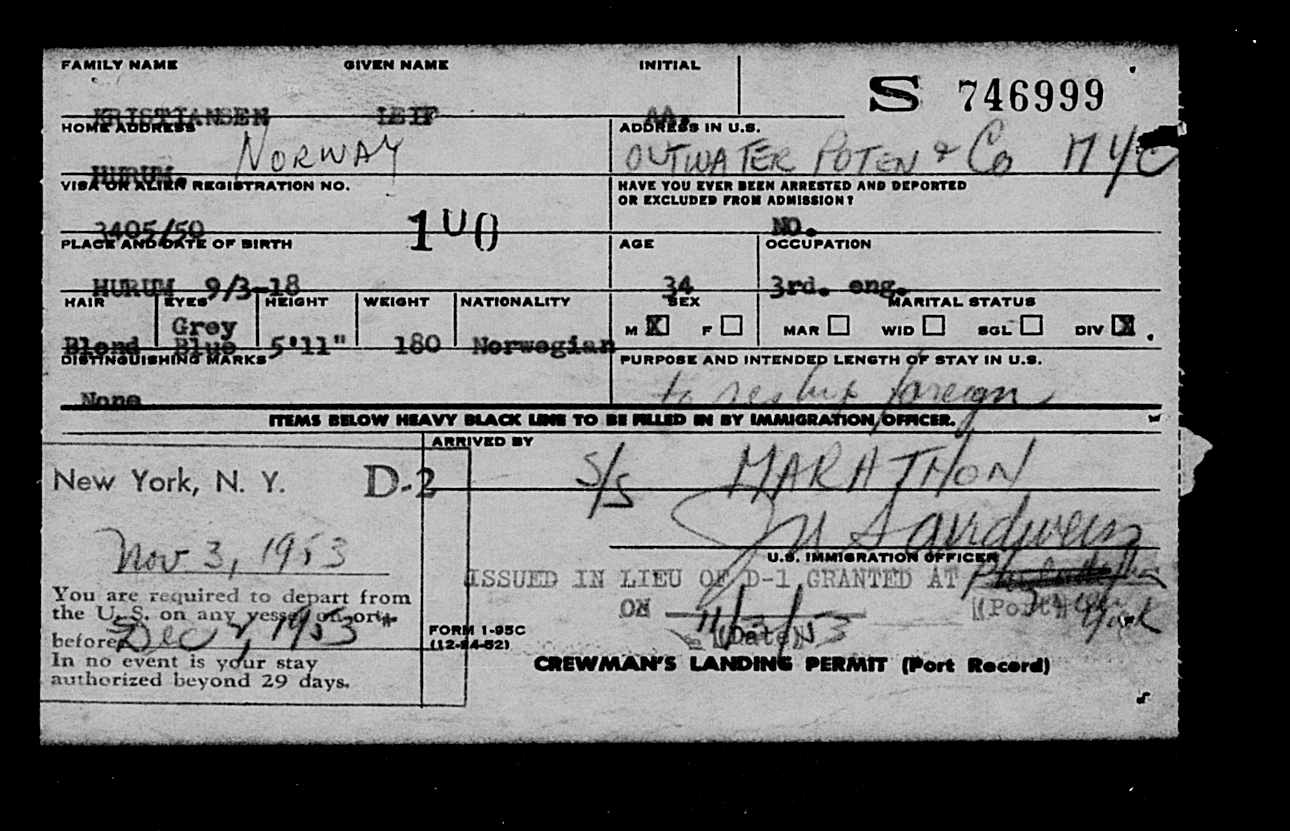 FAMILY NAME GIVEN NAME INITIAL
S 746999
KRISTIANSEN LEIF AA.
HOME ADDRESS ADDRESS IN U.S.
HURUM. NORWAY OUTWATER POTEN & Co NYC
VISA OR ALIEN REGISTRATION NO. HAVE YOU EVER BEEN ARRESTED AND DEPORTED
OR EXCLUDED FROM ADMISSION?
3405/50 100 NO.
PLACE AND DATE OF BIRTH AGE OCCUPATION
HURUM 9/3-18 34 3rd. eng.
HAIR EYES HEIGHT WEIGHT NATIONALITY SEX MARITAL STATUS
M X F MAR WID SGL DIV X .
Grey
Blond Blue 5'11" 180 Norwegian
DISTINGUISHING MARKS PURPOSE AND INTENDED LENGTH OF STAY IN U.S.
None to reship foreign
ITEMS BELOW HEAVY BLACK LINE TO BE FILLED IN BY IMMIGRATION OFFICER.
ARRIVED BY
S/S MARATHON
New York, N. Y. D-2
Nov 3, 1953
U.S. IMMIGRATION OFFICER
ISSUED IN LIEU OF D-1 GRANTED AT
ON 11/3/53 (Date) (Port) York
You are required to depart from
the U. S. on any vessel on or
before Dec 2, 1953
In no event is your stay
authorized beyond 29 days.
FORM I-95C
(12-24-52)
CREWMAN'S LANDING PERMIT (Port Record)